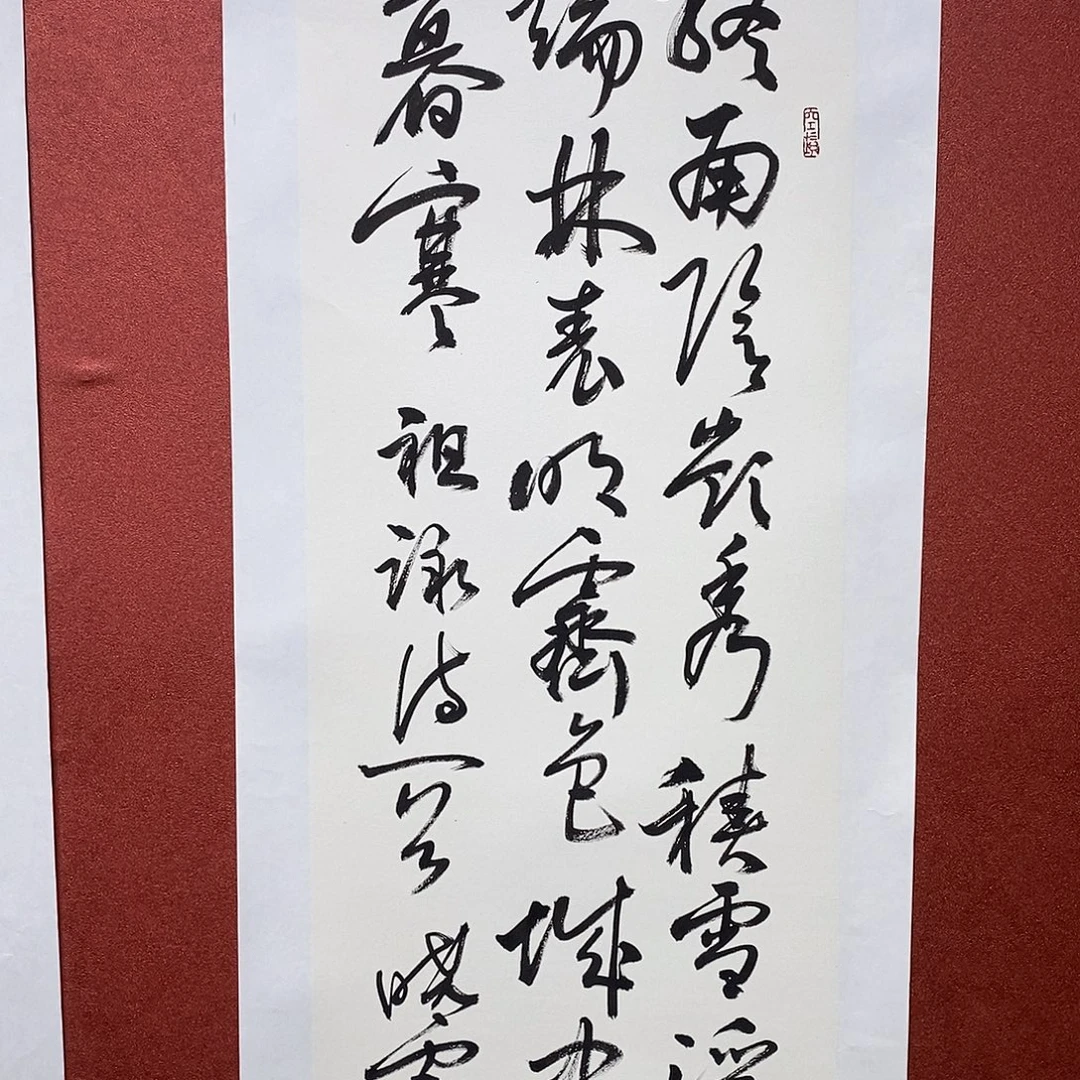 終南陰嶺秀積雪浮
端林表明霽色城中
暮寒祖詠詩一首曉